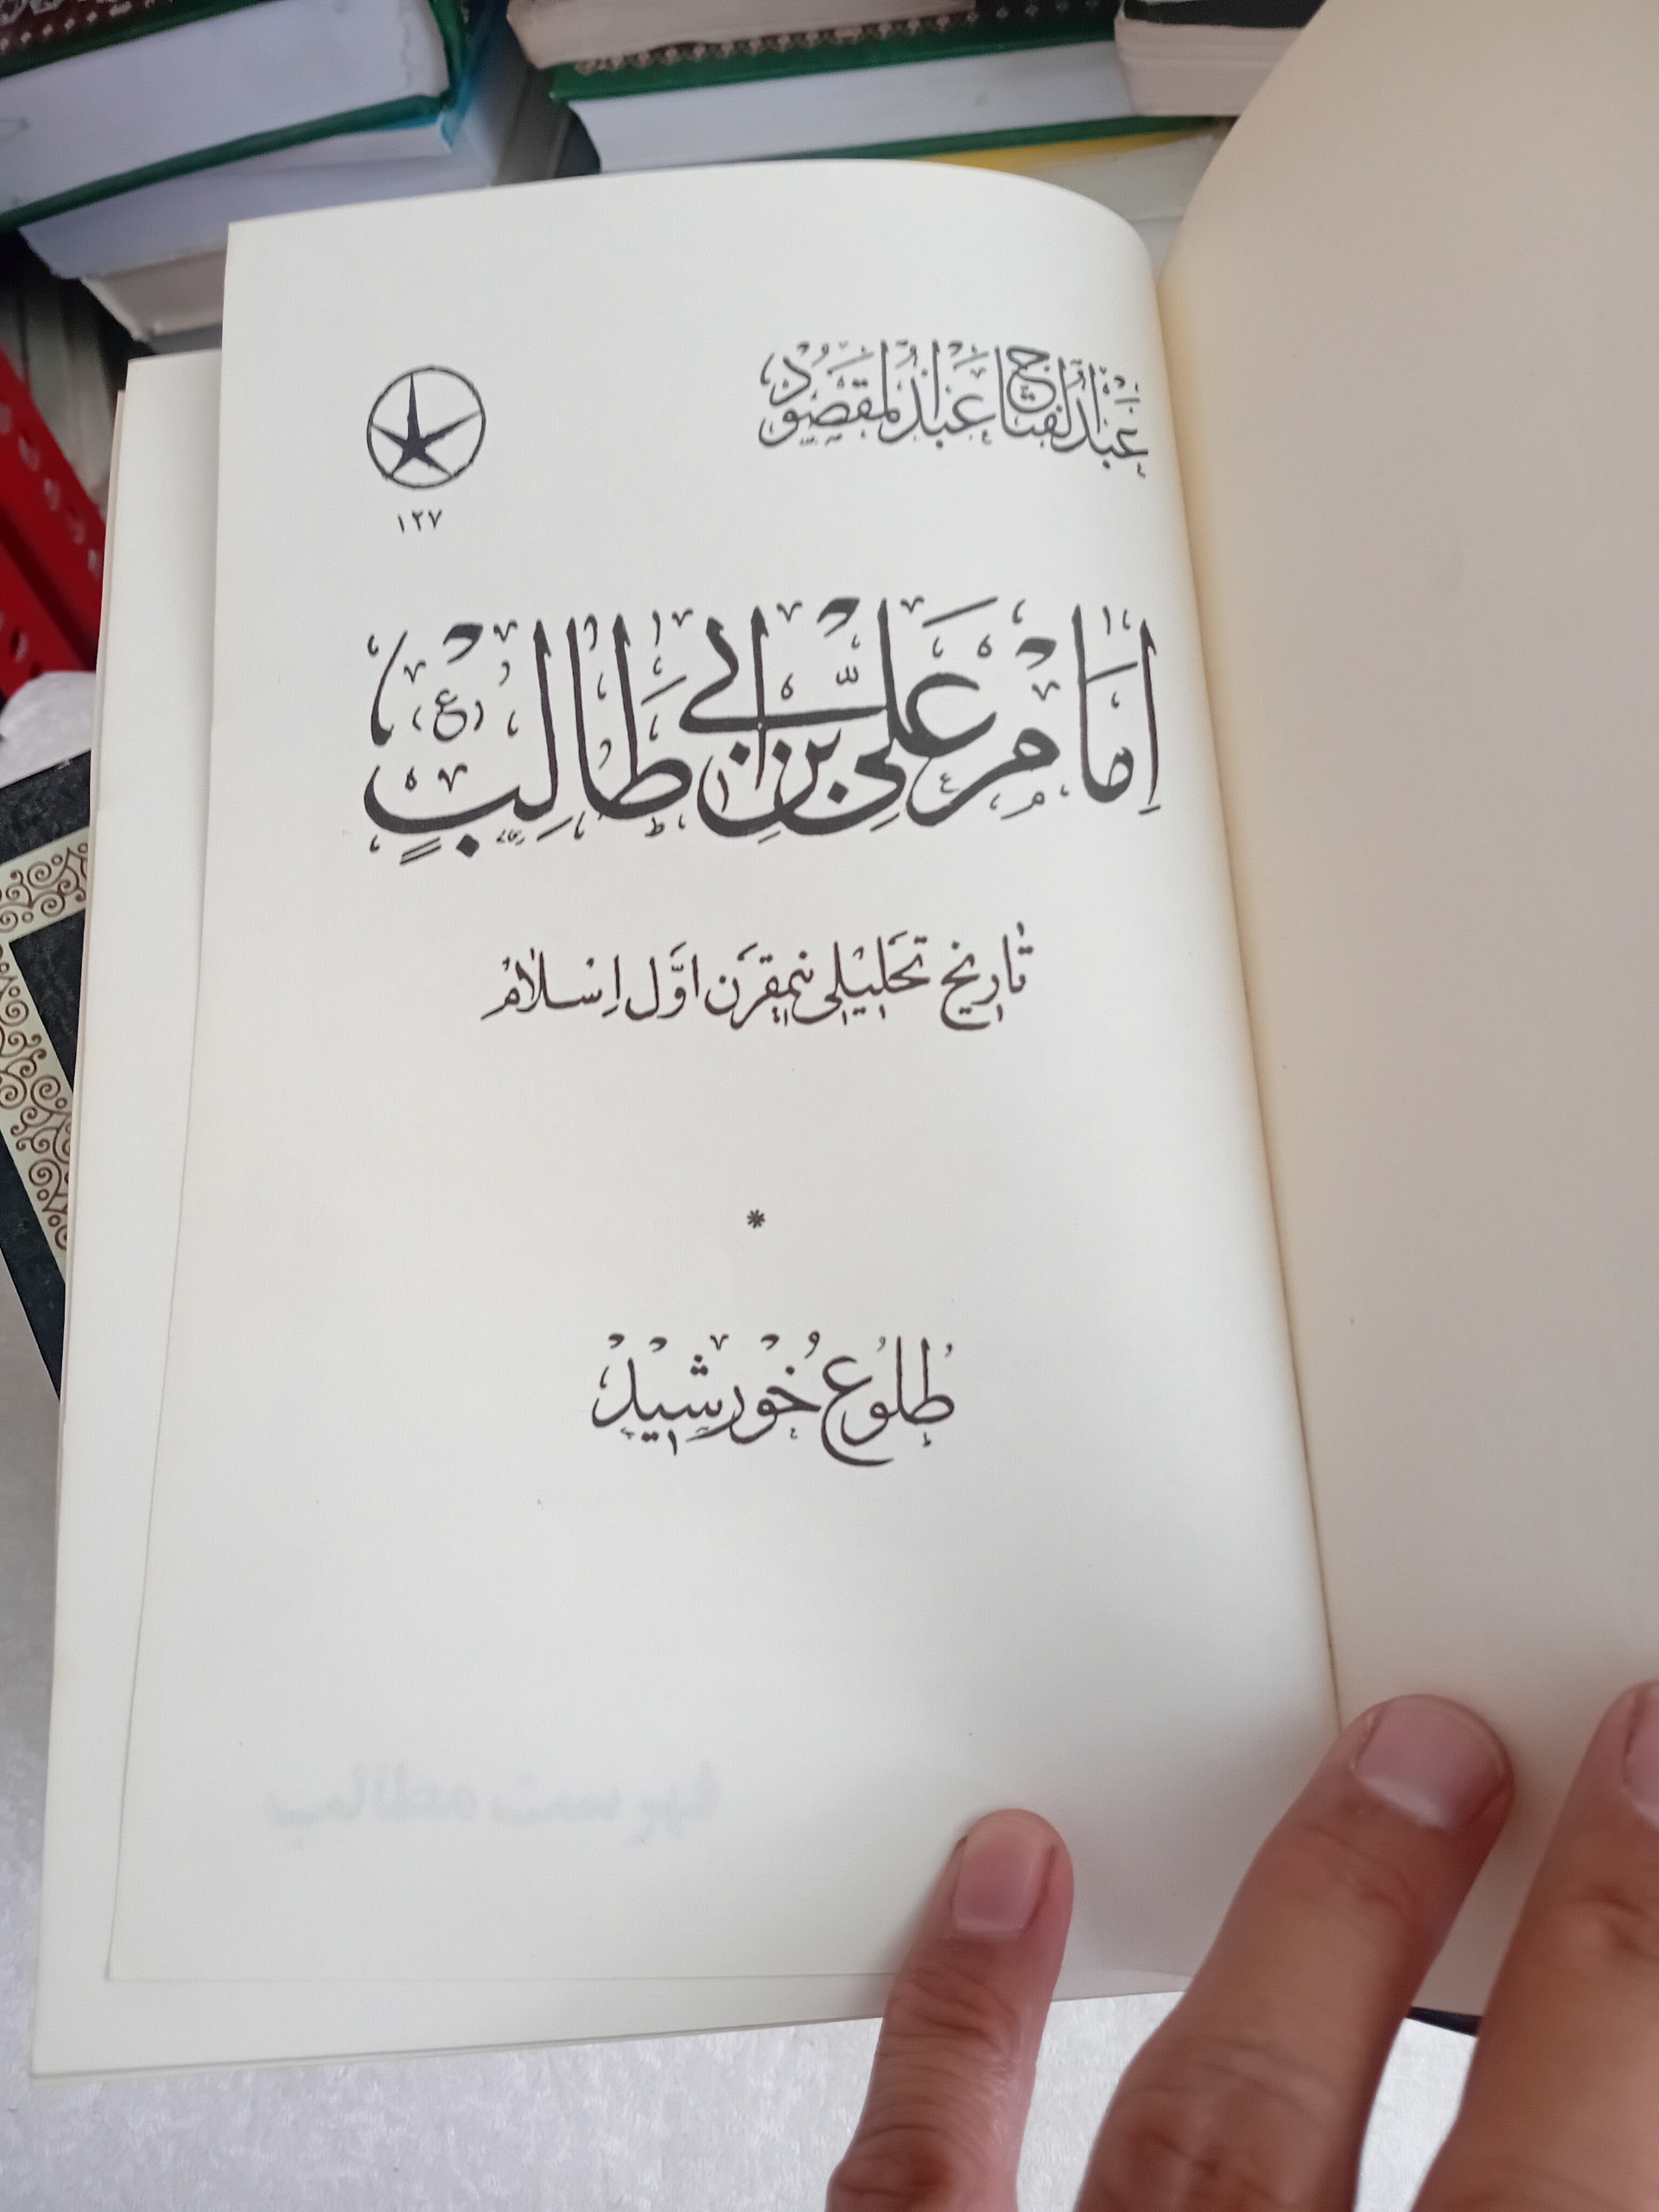 عبدالفتاح عبدالمقصود
۱۲۷
امام علی بن ابی طالب (ع)
تاریخ تحلیلی نیمقرن اول اسلام
*
طلوع خورشید